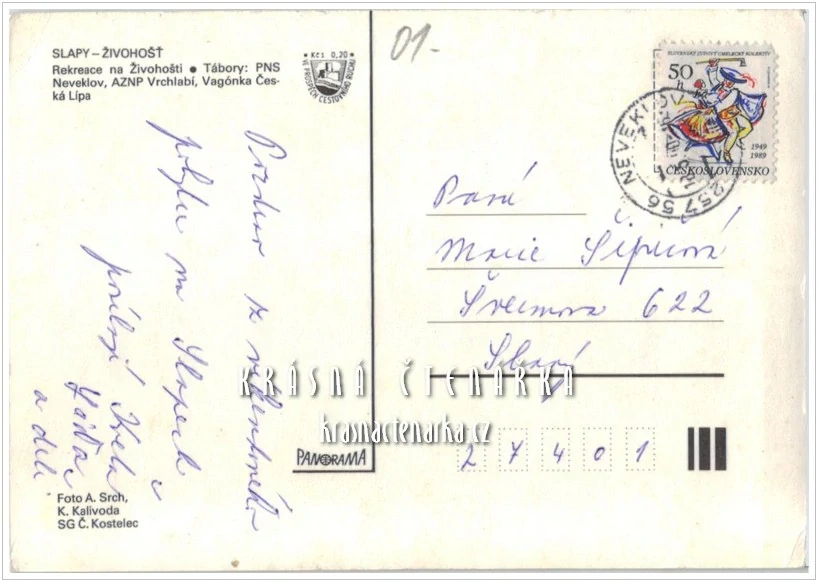 SLAPY – ŽIVOHOŠŤ
Rekreace na Živohošti ● Tábory: PNS
Neveklov, AZNP Vrchlabí, Vagónka Čes-
ká Lípa
Kčs 0,20
VE PROSPĚCH CESTOVNÍHO RUCHU
01-
SLOVENSKÝ ĽUDOVÝ UMELECKÝ KOLEKTÍV
50 h
1949
1989
ČESKOSLOVENSKO
257 56 NEVEKLOV
Pozdrav z víkendového
pobytu na Slapech
posílají Květa
Láďa
a děti
Paní
Marie
Švermova 622
Slaný
27401
KRÁSNÁ ČTENÁŘKA
krasnactenarka.cz
PANORAMA
Foto A. Srch,
K. Kalivoda
SG Č. Kostelec